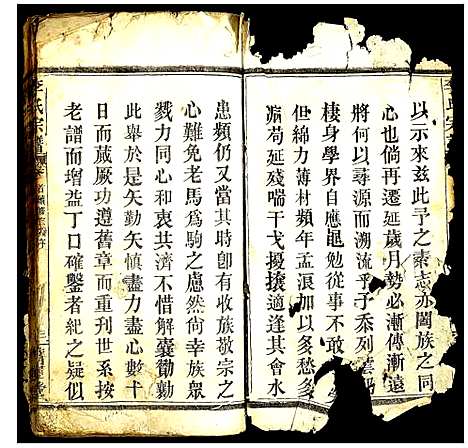 以示來茲此予之素志亦闔族之同
心也倘再遷延歲月勢必漸傳漸遠
將何以尋源而溯流乎予忝列
棲身學界自應黽勉從事不敢
但綿力薄材頻年孟浪以多愁多
病苟延殘喘干戈擾攘適逢其會水
患頻仍又當其時卽有收族敬宗之
心難免老馬爲駒之慮然尙幸族眾
戮力同心和衷共濟不惜解囊勷勷
此舉於是矢勤矢慎盡力盡心數十
日而蕆厥功遵舊章而重刊世系按
老譜而增益丁口確鑿者紀之疑似
李氏宗譜